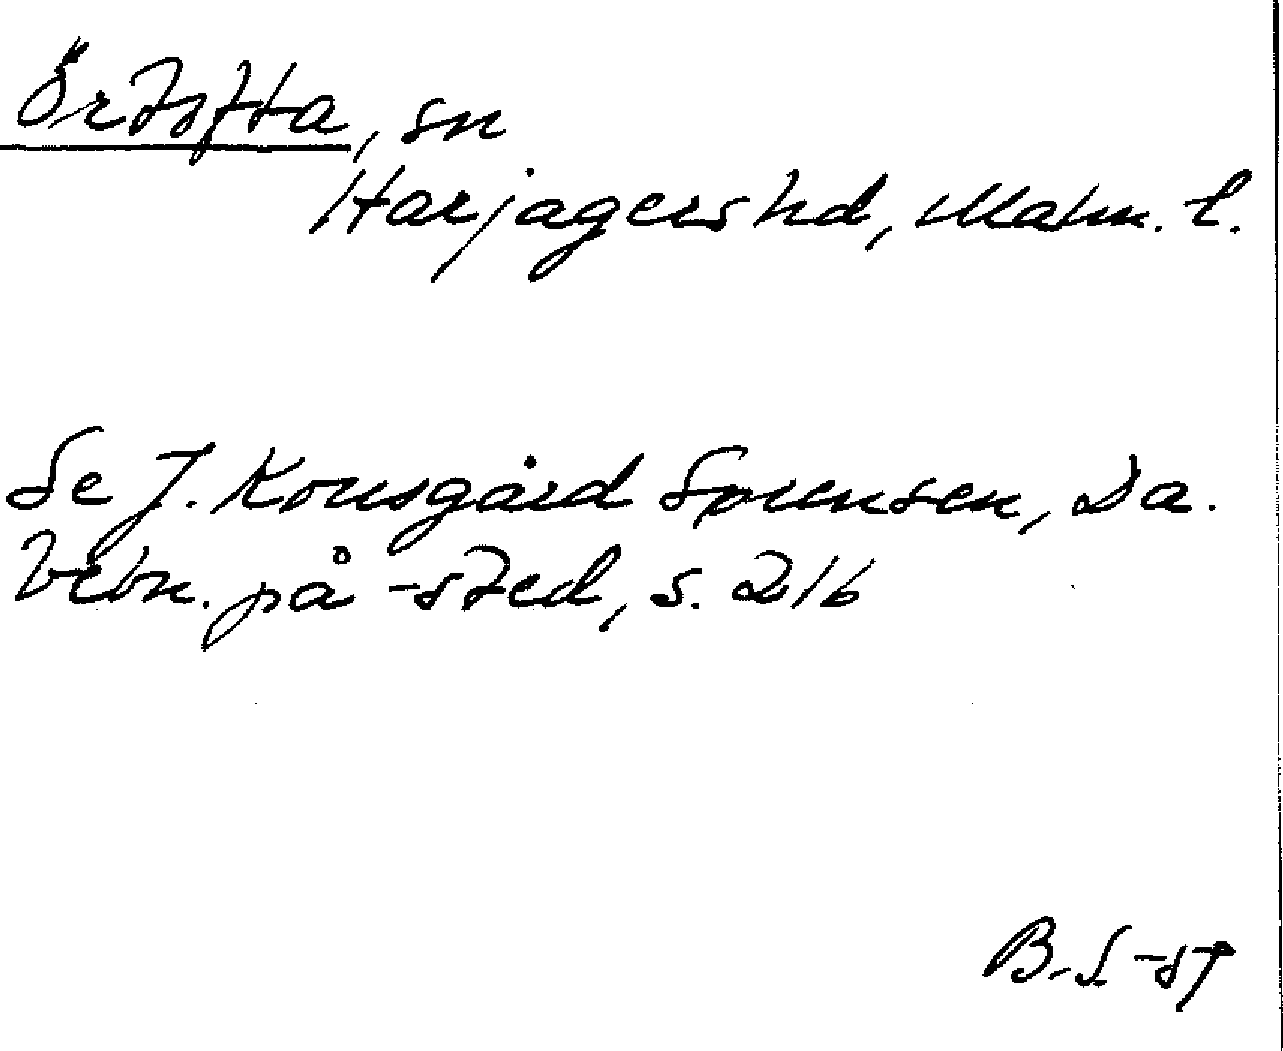 Örtofta, sn
Harjagers hd, Malm. l.
Se J. Kousgård Sørensen, Da.
bebn. på -sted, s. 216
B.S -59